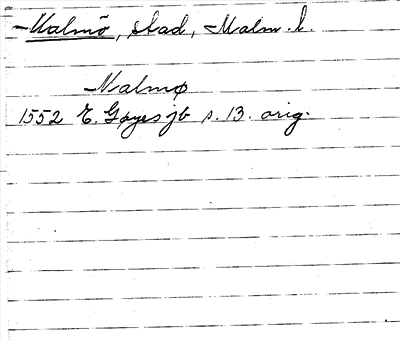 Malmö, stad, Malm. l.
Malmø
1552 E. Gøyes jb s. 13. orig.